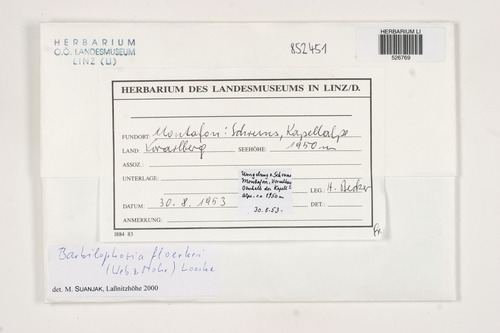 HERBARIUM
O.Ö. LANDESMUSEUM
LINZ (LI)
852451
HERBARIUM LI
526769
HERBARIUM DES LANDESMUSEUMS IN LINZ/D.
FUNDORT: Montafon: Schruns, Kapellalpe
LAND: Vorarlberg SEEHÖHE: 1950 m
ASSOZ.:
UNTERLAGE:
Umgebung v. Schruns
Montafon, Vorarlbg
Oberhalb der Kapell-
Alpe, ca 1950m
30.8.53.
LEG: H. Becker
DATUM: 30. 8. 1953
DET.:
ANMERKUNG:
fr.
1884 83
Barbilophozia floerkei
(Web. & Mohr) Loeske
det. M. SUANJAK, Laßnitzhöhe 2000